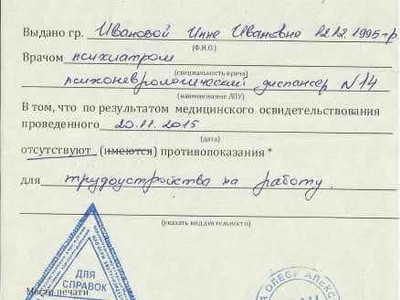 Выдано гр. Ивановой Инне Ивановне 12.12.1995 г.р
(Ф.И.О.)
Врачом психиатром
(специальность врача)
психоневрологический диспансер N14
(наименование ЛПУ)
В том, что по результатом медицинского освидетельствования
проведенного 20.11.2015
(дата)
отсутствуют (имеются) противопоказания *
для трудоустройства на работу
(указать вид деятельности)
Место печати
ДЛЯ
СПРАВОК
ОЛЕСЯ АЛЕКС